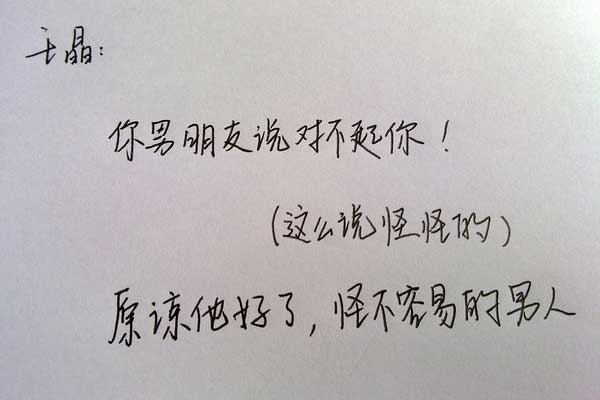 王晶:
你男朋友说对不起你！
(这么说怪怪的)
原谅他好了，怪不容易的男人